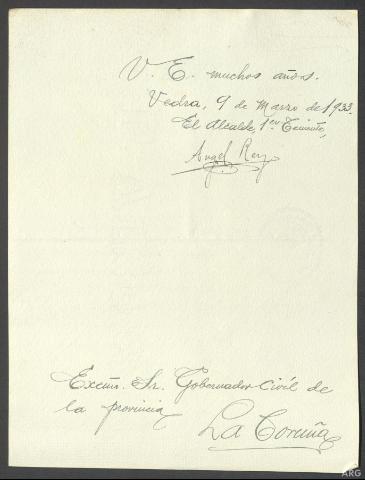 V. E. muchos años.
Vedra, 9 de Marzo de 1933.
El Alcalde, 1er Teniente,
Angel Rey
Excmo. Sr. Gobernador Civil de
la provincia
La Coruña
ARG